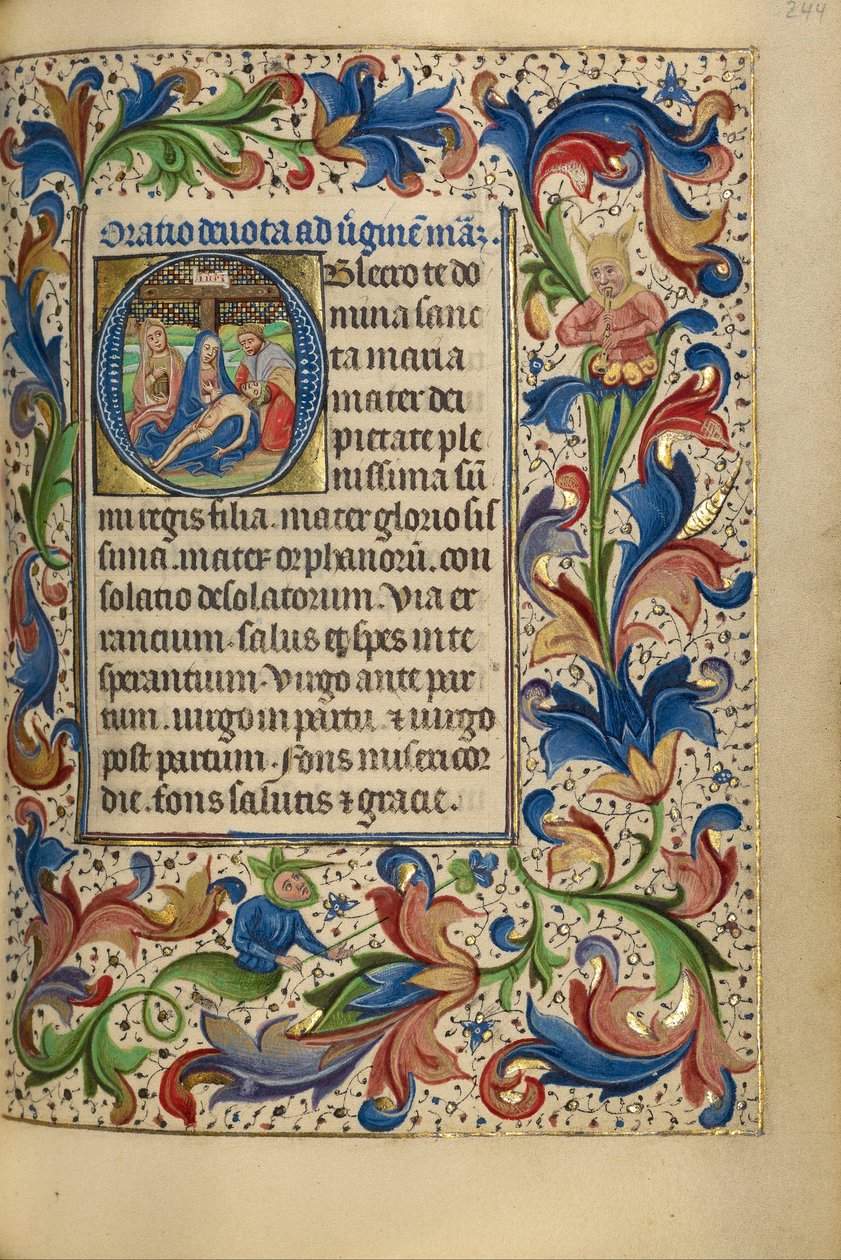 244
Oratio deuota ad ũginẽ mãr.
inri
OBsecro te do
mina sanc
ta maria
mater dei
pietate ple
nissima sũ
mi regis filia. mater gloriosis
sima. mater orphanorũ. con
solatio desolatorum. Via er
rancium. salus et spes in te
sperantium. Virgo ante par
tum. uirgo in partu. ⁊ uirgo
post partum. Fons misericor
die. fons salutis ⁊ gracie.